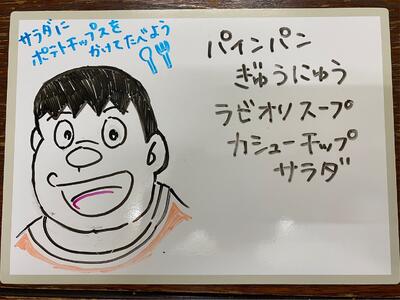 サラダに
ポテトチップスを
かけてたべよう
パインパン
ぎゅうにゅう
ラビオリスープ
カシューチップ
サラダ